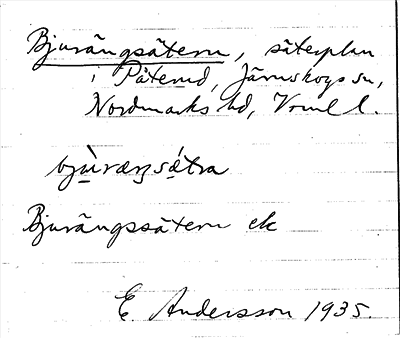 Bjurängsätern, säterplan
i Påterud, Järnskogs sn,
Nordmarks hd, Vrml l.
bjùræŋsǽtra
Bjurängssätern ek
E. Andersson 1935.